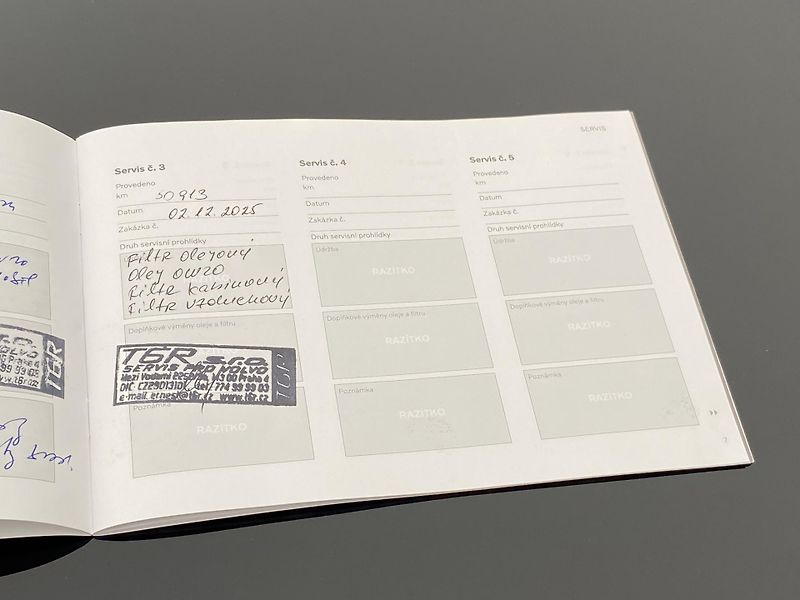 SERVIS
Servis č. 3
Provedeno
km 50913
Datum 02.12.2025
Zakázka č.
Druh servisní prohlídky
Filtr olejový
Oley 0W20
Filtr kabinový
Filtr vzduchovy
Doplňkové výměny oleje a filtru
TGR s.r.o.
SERVIS PRO VOLVO
143 00 Praha 4
tel. 774 99 99 03
TGR
Poznámka
RAZÍTKO
Servis č. 4
Provedeno
km
Datum
Zakázka č.
Druh servisní prohlídky
Údržba
RAZÍTKO
Doplňkové výměny oleje a filtru
RAZÍTKO
Poznámka
RAZÍTKO
Servis č. 5
Provedeno
km
Datum
Zakázka č.
Druh servisní prohlídky
Údržba
RAZÍTKO
Doplňkové výměny oleje a filtru
RAZÍTKO
Poznámka
RAZÍTKO
7